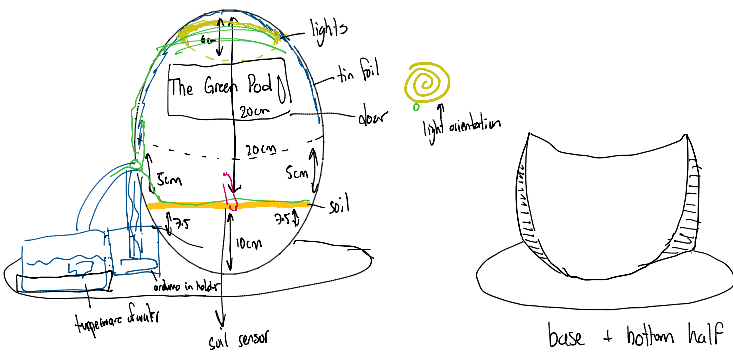 lights
6cm
tin foil
The Green Pod
20cm
door
light orientation
20cm
5cm
5cm
soil
7.5
7.5
10cm
arduino in holder
tupperware of water
soil sensor
base + bottom half